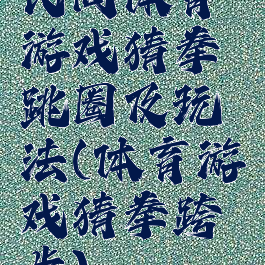 民间体育
游戏猜拳
跳圈及玩
法(体育游
戏猜拳跨
步)